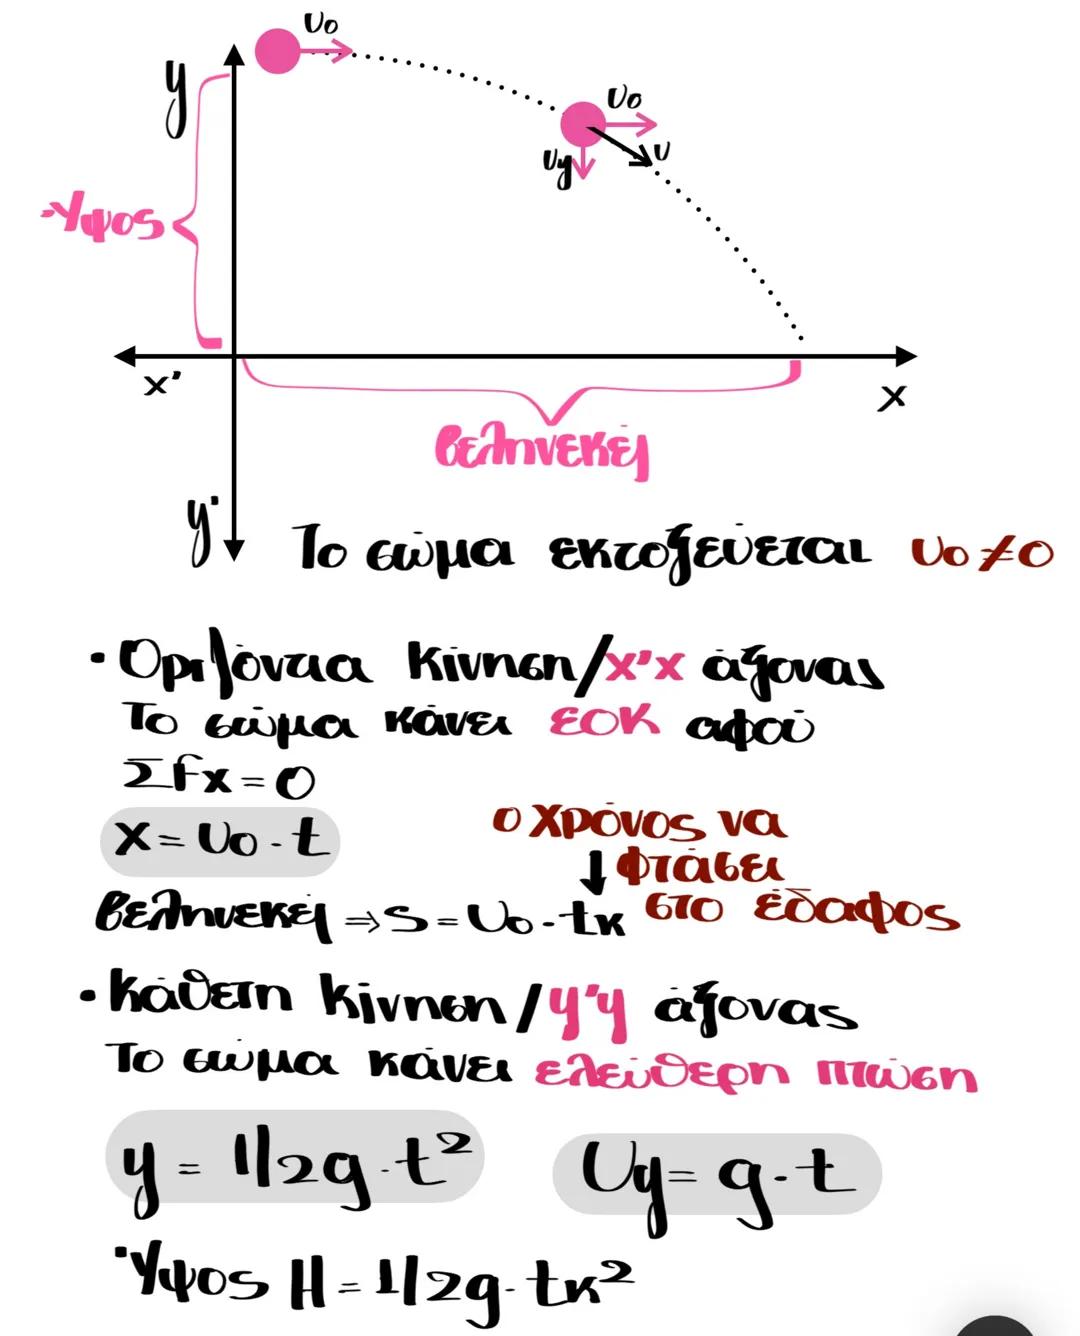 υο
y
υο
υy
υ
Ύψος
x'
x
βεληνεκές
y'
Το σώμα εκτοξεύεται υο≠0
• Οριζόντια κίνηση/x'x άξονας
Το σώμα κάνει ΕΟΚ αφού
ΣFx=0
x=υο·t
ο χρόνος να
↓ φτάσει
στο έδαφος
βεληνεκές ⇒ S=υο·tκ
• κάθετη κίνηση/y'y άξονας
Το σώμα κάνει ελεύθερη πτώση
y = 1/2g·t²
υy= g·t
Ύψος H=1/2g·tκ²